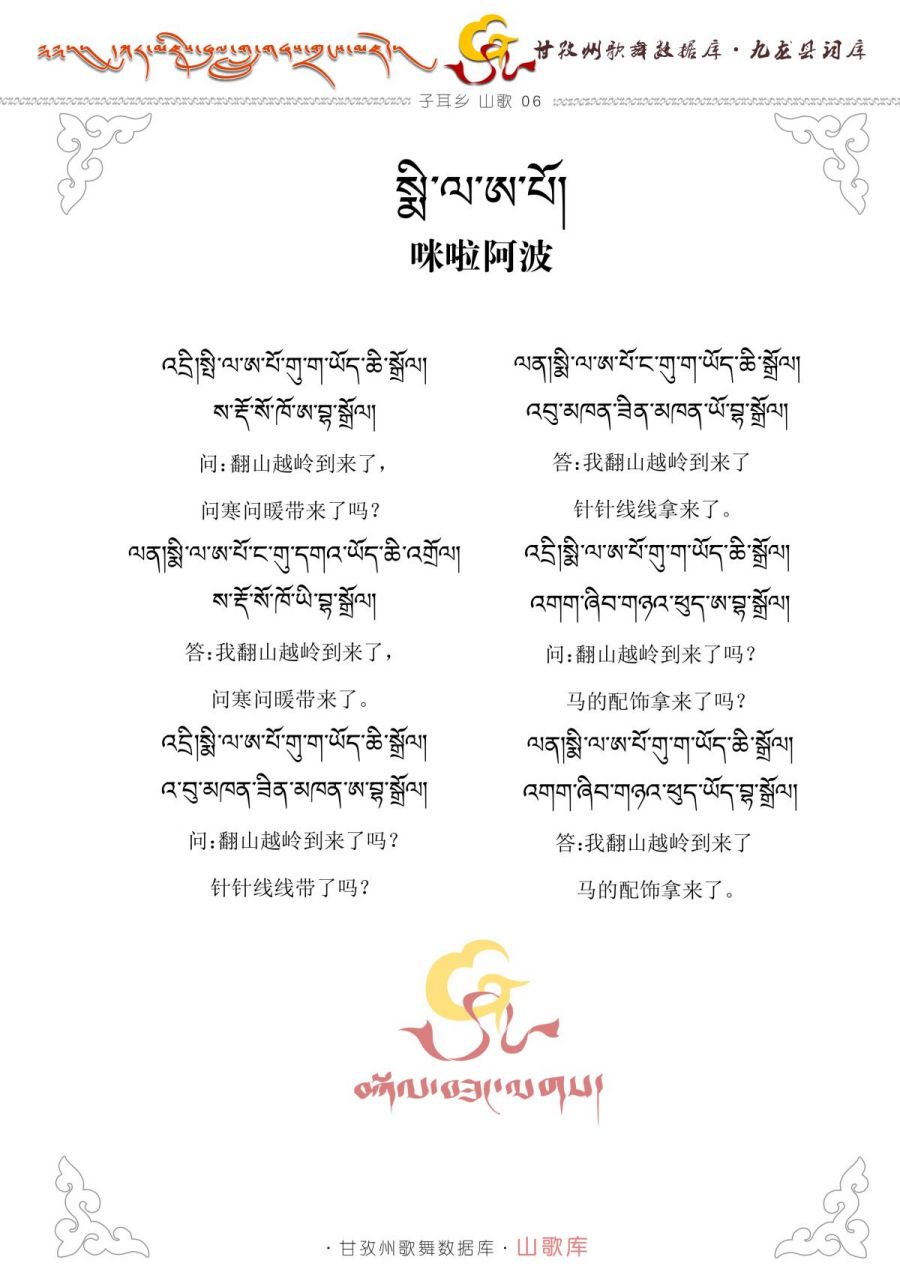 甘孜州歌舞数据库·九龙县词库
子耳乡 山歌 06
སྨི་ལ་ཨ་པོ།
咪啦阿波
འདྲི།སྤྲི་ལ་ཨ་པོ་གུ་ག་ཡོད་ཆི་སྒྲོལ།
ས་རྡོ་སོ་ཁོ་ཨ་བྷ་སྒྲོལ།
问：翻山越岭到来了，
问寒问暖带来了吗？
ལན།སྨི་ལ་ཨ་པོ་ང་གུ་དགའ་ཡོད་ཆི་འགྲོལ།
ས་རྡོ་སོ་ཁོ་ཡི་བྷ་སྒྲོལ།
答：我翻山越岭到来了，
问寒问暖带来了。
འདྲི།སྨི་ལ་ཨ་པོ་གུ་ག་ཡོད་ཆི་སྒྲོལ།
འ་བུ་མཁན་ཟིན་མཁན་ཨ་བྷ་སྒྲོལ།
问：翻山越岭到来了吗？
针针线线带了吗？
ལན།སྨི་ལ་ཨ་པོ་ང་གུ་ག་ཡོད་ཆི་སྒྲོལ།
འབུ་མཁན་ཟིན་མཁན་ཡོ་བྷ་སྒྲོལ།
答：我翻山越岭到来了
针针线线拿来了。
འདྲི།སྨི་ལ་ཨ་པོ་གུ་ག་ཡོད་ཆི་སྒྲོལ།
འགག་ཞིབ་གཉའ་ཕུད་ཨ་བྷ་སྒྲོལ།
问：翻山越岭到来了吗？
马的配饰拿来了吗？
ལན།སྨི་ལ་ཨ་པོ་གུ་ག་ཡོད་ཆི་སྒྲོལ།
འགག་ཞིབ་གཉའ་ཕུད་ཡོད་བྷ་སྒྲོལ།
答：我翻山越岭到来了
马的配饰拿来了。
·甘孜州歌舞数据库·山歌库